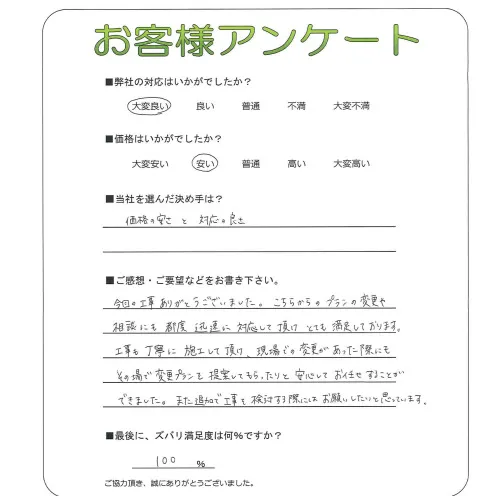 お客様アンケート
■弊社の対応はいかがでしたか?
大変良い 良い 普通 不満 大変不満
■価格はいかがでしたか?
大変安い 安い 普通 高い 大変高い
■当社を選んだ決め手は?
価格の安さ と 対応の良さ
■ご感想・ご要望などをお書き下さい。
今回の工事ありがとうございました。こちらからのプランの変更や
相談にも都度迅速に対応して頂けとても満足しております。
工事も丁寧に施工して頂け、現場での変更があった際にも
その場で変更プランを提案してもらったりと安心してお任せすることが
できました。また追加で工事を検討する際にはお願いしたいと思っています。
■最後に、ズバリ満足度は何%ですか?
100 %
ご協力頂き、誠にありがとうございました。